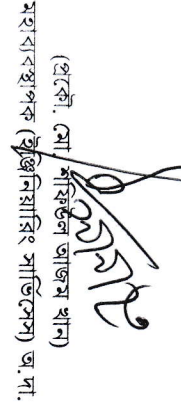 (প্রকৌ. মো আজম খান)
মহাব্যবস্থাপক (ইঞ্জিনিয়ারিং সার্ভিসেস) অ.দা.